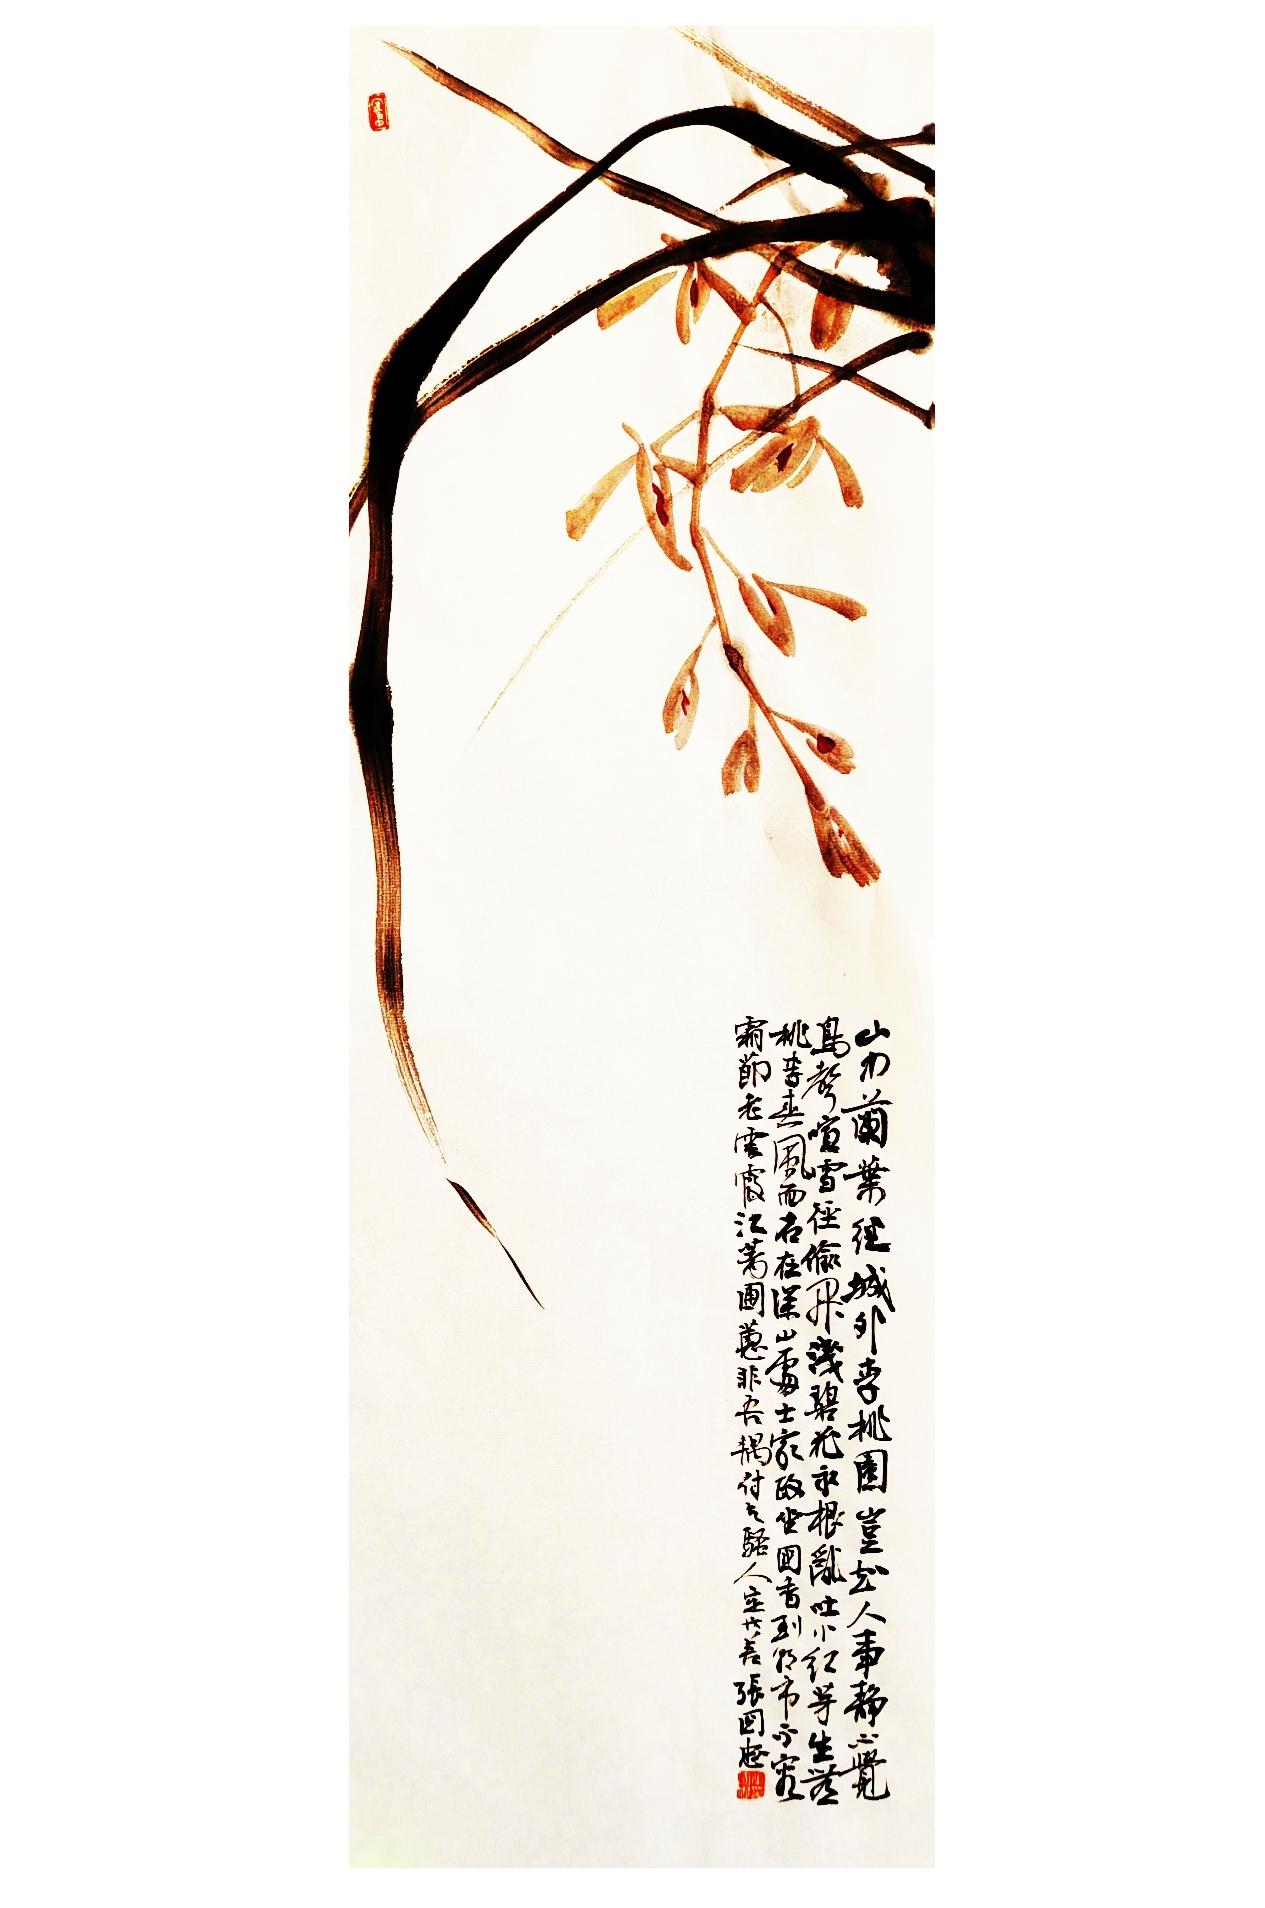 山中蘭葉徑城外李桃園豈知人事靜不覺
鳥聲喧雪徑偷開淺碧花冰根亂吐小紅芽生無
桃李春風面名在深山處士家政坐國香到朝市不容
霜節老雲霞江蓠圃蕙非吾耦付與騷人定等差張國